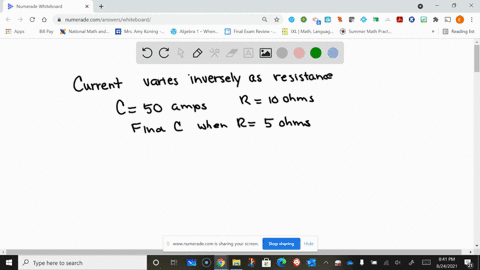 Numerade Whiteboard
numerade.com/answers/whiteboard/
Apps
Bill Pay
National Math and...
Mrs. Amy Koning -...
Algebra 1 - When...
Final Exam Review -...
IXL | Math, Languag...
Summer Math Pract...
Reading list
Current varies inversely as resistance
C = 50 amps R = 10 ohms
Find C when R = 5 ohms
www.numerade.com is sharing your screen. Stop sharing Hide
Type here to search
8:41 PM
8/24/2021